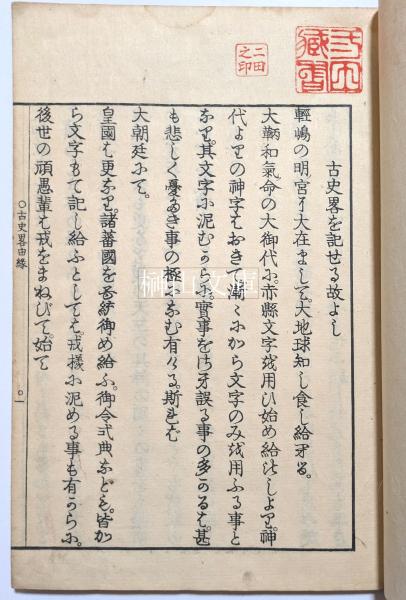 二田之印
藏書
古史畧を記せる故よし
輕嶋の明宮に大在まして。大地球知し食し給へる。
大鞆和氣命の大御代に。赤縣文字を用ひ始め給ひしより。神
代よりの神字はおきて漸々にから文字のみを用ふる事と
なり。其文字に泥むからに。實事をさへ誤る事の多かるは。甚
も悲しく憂き事の極になむ有ける。斯れば
大朝廷にて。
皇國は更なり諸蕃國を統御め給ふ。御令式典なども。皆か
ら文字もて記し給ふとしては。戎樣に泥める事も有からに。
後世の頑愚輩は戎をまねびて。始て
○古史畧由緣 ○一
榊山文庫